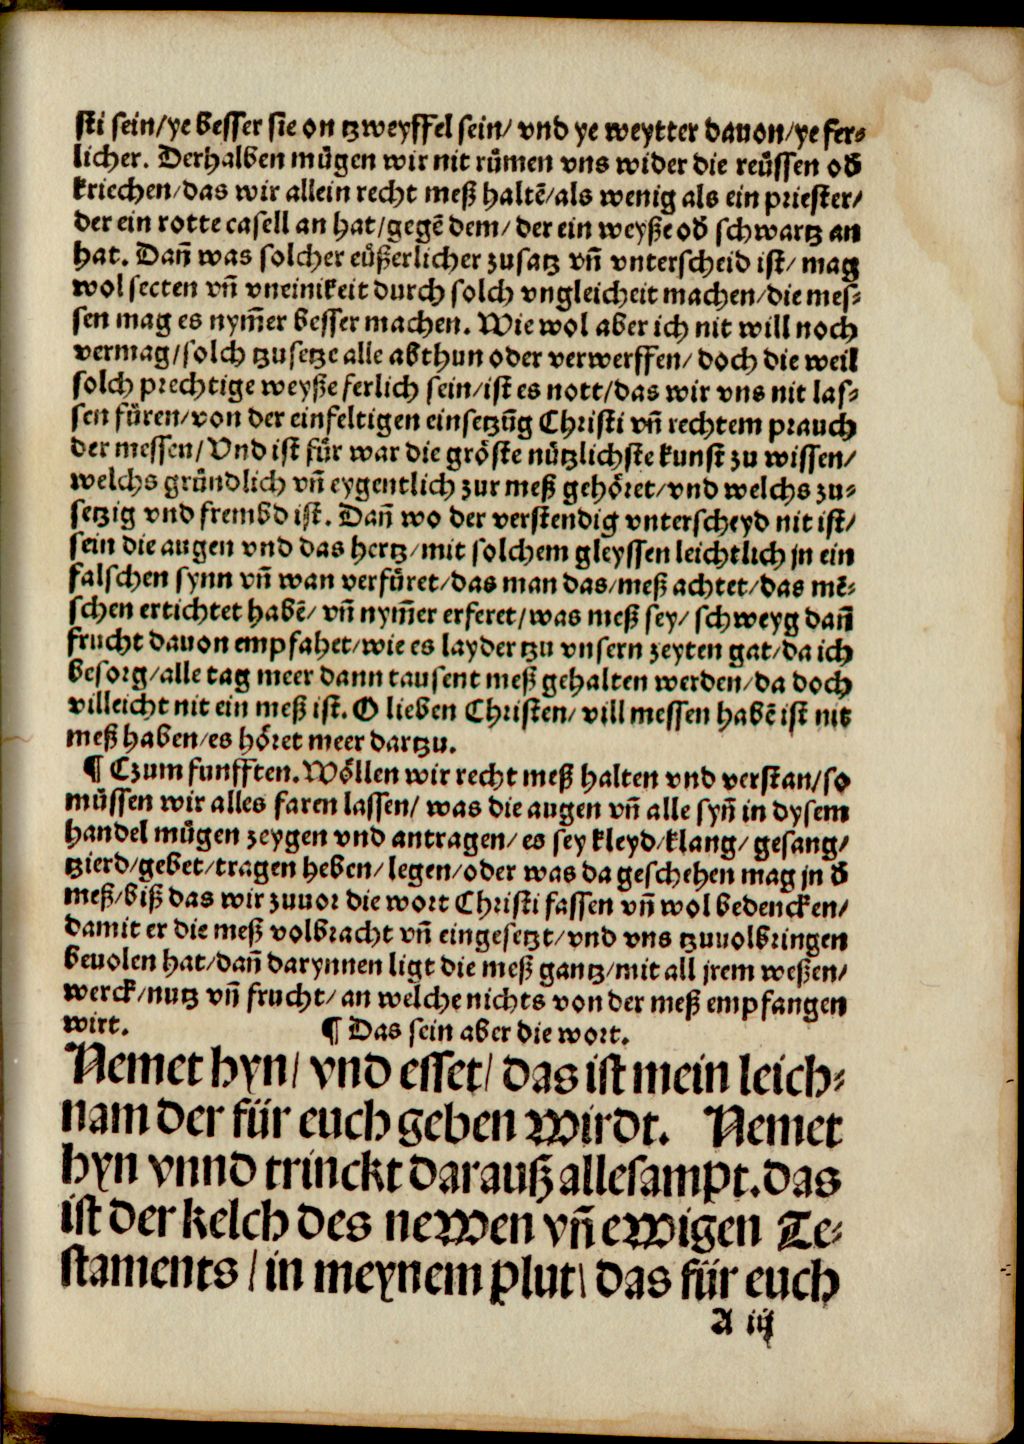 sti sein/ye besser sie on tzweyffel sein/ vnd ye weytter dauon/ye fer⸗
licher. Derhalben mügen wir nit rümen vns wider die reüssen oď
kriechen/das wir allein recht meß haltē/als wenig als ein priester/
der ein rotte casell an hat/gegē dem/ der ein weyße oď schwartz an
hat. Dañ was solcher eüßerlicher zusatz vñ vnterscheid ist/ mag
wol secten vñ vneinikeit durch solch vngleicheit machen/die mes⸗
sen mag es nym̄er besser machen. Wie wol aber ich nit will noch
vermag/solch tzusetze alle abthun oder verwerffen/ doch die weil
solch prechtige weyße ferlich sein/ist es nott/das wir vns nit las⸗
sen füren/von der einfeltigen einsetzūg Christi vñ rechtem prauch
der messen/ Vnd ist für war die gröste nützlichste kunst zu wissen/
welchs gründlich vñ eygentlich zur meß gehöret/vnd welchs zu⸗
setzig vnd frembd ist. Dañ wo der verstendig vnterscheyd nit ist/
sein die augen vnd das hertz/mit solchem gleyssen leichtlich jn ein
falschen synn vñ wan verfüret/das man das/meß achtet/das mē⸗
schen ertichtet habē/ vñ nym̄er erferet/was meß sey/ schweyg dañ
frucht dauon empfahet/wie es layder tzu vnsern zeyten gat/da ich
besorg/alle tag meer dann tausent meß gehalten werden/da doch
villeicht nit ein meß ist. O lieben Christen/ vill messen habē ist nit
meß haben/es höret meer dartzu.
¶ Czum funfften. Wöllen wir recht meß halten vnd verstan/so
müssen wir alles faren lassen/ was die augen vñ alle syñ in dysem
handel mügen zeygen vnd antragen/ es sey kleyd/klang/ gesang/
tzierd/gebet/tragen heben/legen/oder was da geschehen mag jn ď
meß/biß das wir zuuor die wort Christi fassen vñ wol bedencken/
damit er die meß volbracht vñ eingesetzt/vnd vns tzuuolbringen
beuolen hat/dañ darynnen ligt die meß gantz/mit all jrem weßen/
werck/nutz vñ frucht/ an welche nichts von der meß empfangen
wirt. ¶ Das sein aber die wort.
Nemet hyn/ vnd esset/ das ist mein leich⸗
nam der für euch geben wirdt. Nemet
hyn vnnd trinckt darauß allesampt. das
ist der kelch des newen vñ ewigen Te⸗
staments / in meynem plut/ das für euch
A iij